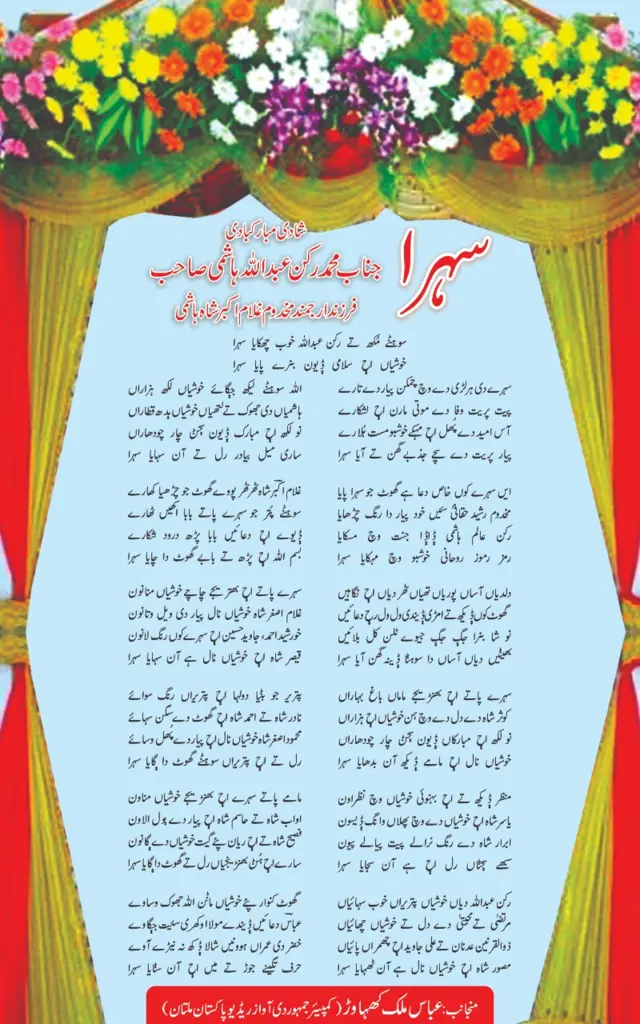 شادی مبارکبادی
سہرا
جناب محمد رکن عبداللہ ہاشمی صاحب
فرزند ارجمند مخدوم غلام اکبر شاہ ہاشمی
سوہنے مکھ تے رکن عبداللہ خوب چھکایا سہرا
خوشیاں اڄ سلامی ڈیون بنرے پایا سہرا
سہرے دی ہر لڑی دے وچ چمکن پیار دے تارے
پیت پریت وفا دے موتی مارن اڄ لشکارے
آس امید دے پھل اڄ مہکے خوشبو مست ہلارے
پیار پریت دے سچے جذبے گھن تے آیا سہرا
اللہ سوہنے لیکھ جگائے خوشیاں لکھ ہزاراں
ہاشمیاں دی جھوک تے خوشیاں بدھ قطاراں
نو لکھ اڄ مبارک ڈیون سجن چار چودھاراں
ساری میل بیادر رل تے آن سہایا سہرا
ایں سہرے کوں خاص دعا ہے گھوٹ جو سہرا پایا
مخدوم رشید حقانی سئیں خود پیار دا رنگ چڑھایا
رکن عالم ہاشمی ڈاڈا جنت وچ مسکایا
رمز رموز روحانی خوشبو وچ مہکایا سہرا
غلام اکبر شاہ ٹھر ٹھر پووے گھوٹ جو چڑھیا کھارے
سوہنے پتر جو سہرے پاتے بابا اکھیں ٹھارے
ڈیوے اڄ دعائیں بابا پڑھ درود شکارے
بسم اللہ اڄ پڑھ تے بابے گھوٹ دا چایا سہرا
دلدیاں آساں پوریاں تھیاں ٹھر دیاں اڄ نگاہیں
گھوٹ کوں ڈیکھ تے امڑی ڈیندی ول ول رج دعائیں
نو شا بنرا جگ جگ جیوے ٹلن کل بلائیں
بھینیں دیاں آساں دا سوہنا ڈینہ گھن آیا سہرا
سہرے پاتے اڄ بھنریجے چاچے خوشیاں مناون
غلام اصغر شاہ خوشیاں نال پیار دی ویل وتاون
خورشید احمد، جاوید حسین اڄ سہرے کوں رنگ لاون
قیصر شاہ اڄ خوشیاں نال ہے آن سہایا سہرا
سہرے پاتے اڄ بھنریجے ماماں باغ بہاراں
کوثر شاہ دے دل دے وچ ہن خوشیاں اڄ ہزاراں
نو لکھ اڄ مبارکاں ڈیون سجن چار چودھاراں
خوشیاں نال اڄ مامے ڈیکھ آن بدھایا سہرا
پتریر جو بنیا دولہا اڄ پتریراں رنگ سوائے
نادر شاہ تے احمد شاہ اڄ گھوٹ دے سگن سہائے
محمود اصغر شاہ خوشیاں نال اڄ پیار دے پھل وسائے
رل تے اڄ پتریراں سوہنے گھوٹ دا ڳایا سہرا
منظر ڈیکھ تے اڄ بہنوئی خوشیاں وچ نظر اون
یاسر شاہ اڄ خوشیاں دے وچ پھلاں وانگ ڈیسون
ابرار شاہ دے رنگ نرالے پیت پیالے پیون
سبھے سجناں رل اڄ ہے آن سجایا سہرا
مامے پاتے سہرے اڄ بھنریجے خوشیاں مناون
اواب شاہ تے حاسم شاہ اڄ پیار دے بول الاون
فصیح شاہ تے اڄ ریان بنے گیت خوشیاں دے ڳاون
سارے اڄ ہن بھنریجیاں رل تے گھوٹ دا ڳایا سہرا
رکن عبداللہ دیاں خوشیاں پتریراں خوب سہائیاں
مرتضیٰ تے مجتبیٰ دے دل تے خوشیاں چھائیاں
ذوالقرنین عدنان تے علی جاوید اڄ جھمراں پائیاں
مصور شاہ اڄ خوشیاں نال ہے آن ٹھہایا سہرا
گھوٹ کنوار بنے خوشیاں ماڻن اللہ جھوک وساوے
عباس دعائیں ڈیندے مولا اوکھری سئیت جگاوے
خضر دی عمراں ہووینیں شالا ڈکھ نہ نیڑے آوے
حرف نگینے جوڑ تے میں اڄ آن سنایا سہرا
منجانب: عباس ملک کھہاوڑ (کمپیئر جمہور دی آواز ریڈیو پاکستان ملتان)